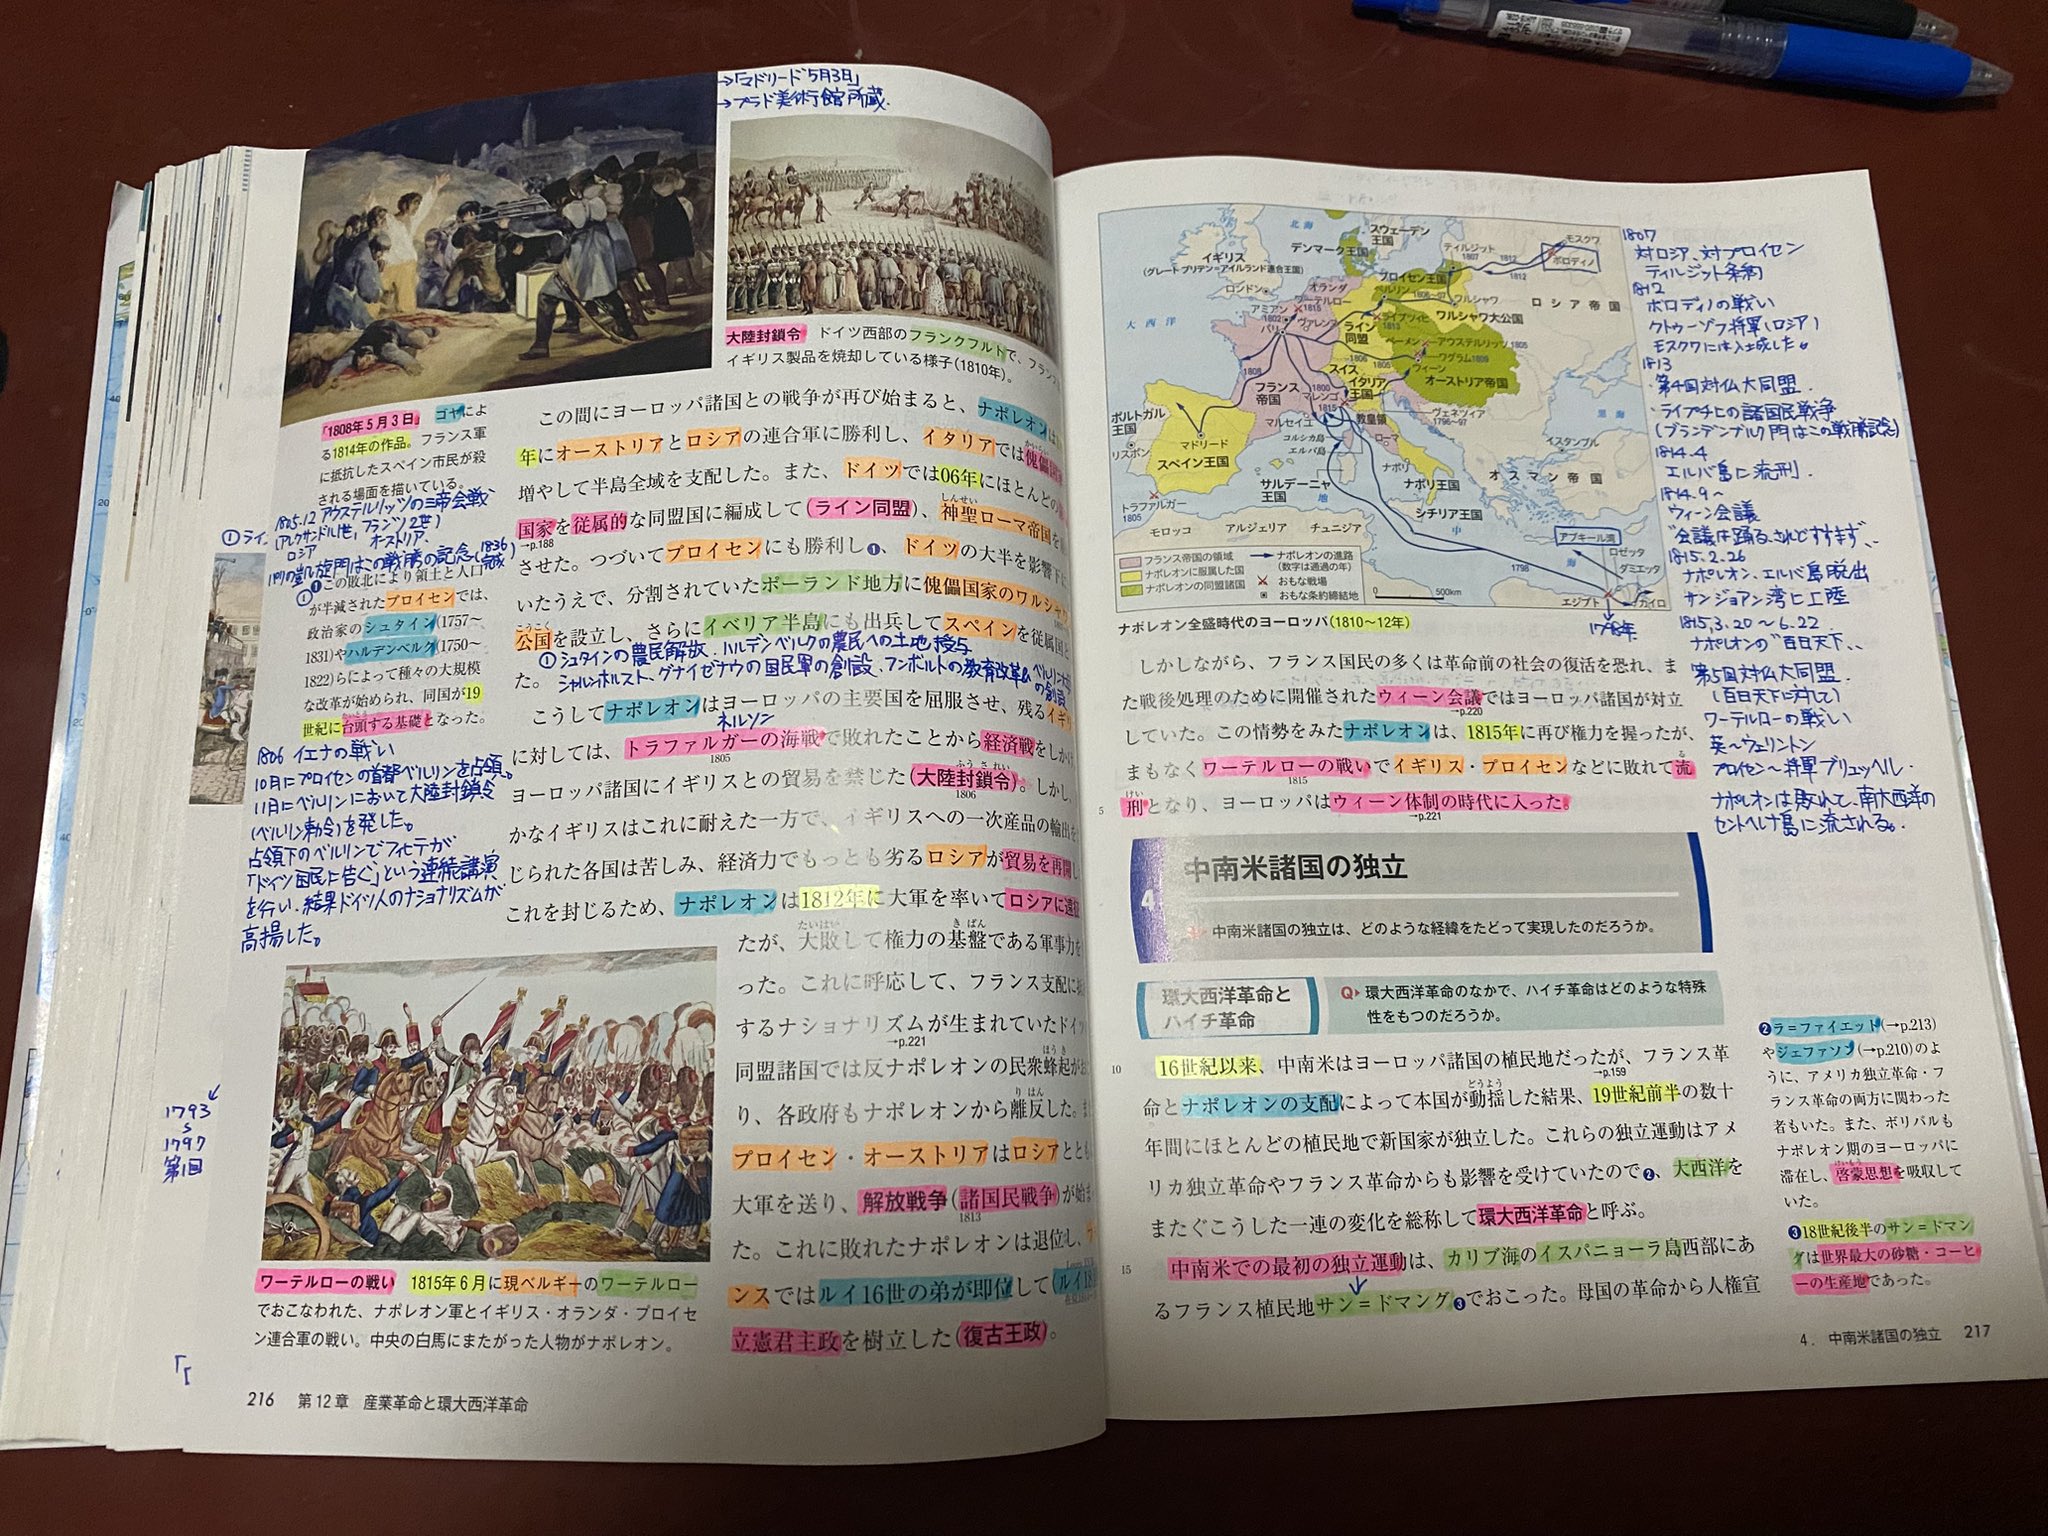 →「マドリード5月3日」
→プラド美術館所蔵.
大陸封鎖令 ドイツ西部のフランクフルトで、フランス
イギリス製品を焼却している様子(1810年)。
「1808年5月3日」 ゴヤによ
る1814年の作品。フランス軍
に抵抗したスペイン市民が殺
される場面を描いている。
1805.12 アウステルリッツの三帝会戦
(アレクサンドル1世, フランツ2世)
ロシア オーストリア.
パリの凱旋門はこの戦勝の記念(1836完成)
①ライ
❶この敗北により領土と人口
が半減されたプロイセンでは、
政治家のシュタイン(1757〜
1831)やハルデンベルク(1750〜
1822)らによって種々の大規模
な改革が始められ、同国が19
世紀に台頭する基礎となった。
1806 イエナの戦い
10月にプロイセンの首都ベルリンを占領。
11月にベルリンにおいて大陸封鎖令
(ベルリン勅令)を発した。
占領下のベルリンでフィヒテが
「ドイツ国民に告ぐ」という連続講演
を行い、結果ドイツ人のナショナリズムが
高揚した。
この間にヨーロッパ諸国との戦争が再び始まると、ナポレオンは
年にオーストリアとロシアの連合軍に勝利し、イタリアでは傀儡
増やして半島全域を支配した。また、ドイツでは06年にほとんどの
国家を従属的な同盟国に編成して(ライン同盟)、神聖ローマ帝国を
→p.188
させた。つづいてプロイセンにも勝利し❶、ドイツの大半を影響下に
いたうえで、分割されていたポーランド地方に傀儡国家のワルシャワ
公国を設立し、さらにイベリア半島にも出兵してスペインを従属国と
①シュタインの農民解放、ハルデンベルクの農民への土地授与
た。
シャルンホルスト、グナイゼナウの国民軍の創設、フンボルトの教育改革&ベルリン大学の創設
こうしてナポレオンはヨーロッパの主要国を屈服させ、残るイギリ
ネルソン
に対しては、トラファルガーの海戦で敗れたことから経済戦をしかけ
1805
ヨーロッパ諸国にイギリスとの貿易を禁じた(大陸封鎖令)。しかし、
1806
かなイギリスはこれに耐えた一方で、イギリスへの一次産品の輸出を
じられた各国は苦しみ、経済力でもっとも劣るロシアが貿易を再開し
これを封じるため、ナポレオンは1812年に大軍を率いてロシアに遠征
たが、大敗して権力の基盤である軍事力を
った。これに呼応して、フランス支配に
するナショナリズムが生まれていたドイ
→p.221
同盟諸国では反ナポレオンの民衆蜂起が
り、各政府もナポレオンから離反した。
プロイセン・オーストリアはロシアととも
大軍を送り、解放戦争(諸国民戦争)が始
1813
た。これに敗れたナポレオンは退位し、
ンスではルイ16世の弟が即位して(ルイ18
立憲君主政を樹立した(復古王政)。
1793
〜
1797
第1回
ワーテルローの戦い 1815年6月に現ベルギーのワーテルロー
でおこなわれた、ナポレオン軍とイギリス・オランダ・プロイセ
ン連合軍の戦い。中央の白馬にまたがった人物がナポレオン。
216 第12章 産業革命と環大西洋革命
北海
スウェーデン王国
デンマーク王国
イギリス
(グレートブリテン=アイルランド連合王国)
ロンドン
ティルジット
1807
1812
1812
モスクワ
ボロディノ
プロイセン王国
ベルリン
1806
オランダ
ワーテルロー
1815
アミアン
1802
パリ
ヴァレンヌ
ライプツィヒ
1813
ワルシャワ
ワルシャワ大公国
ロシア帝国
大西洋
ライン同盟
ベーメン
アウステルリッツ
1805
ワグラム1809
ウィーン
オーストリア帝国
スイス
イタリア王国
フランス帝国
1808
1800
マレンゴ
1815
教皇領
ヴェネツィア
1796〜97
マルセイユ
コルシカ島
エルバ島
ローマ
ポルトガル王国
リスボン
マドリード
スペイン王国
ナポリ
ナポリ王国
サルデーニャ王国
シチリア王国
イスタンブル
黒海
オスマン帝国
トラファルガー
1805
モロッコ
アルジェリア
チュニジア
地
中
海
1798
アブキール湾
ロゼッタ
ダミエッタ
エジプト
カイロ
フランス帝国の領域
ナポレオンに服属した国
ナポレオンの同盟諸国
ナポレオンの進路
(数字は通過の年)
おもな戦場
おもな条約締結地
0 500km
1798年
ナポレオン全盛時代のヨーロッパ(1810〜12年)
1807
対ロシア、対プロイセン
ティルジット条約
1812
ボロディノの戦い
クトゥーゾフ将軍(ロシア)
モスクワには入城した。
1813
・第4回対仏大同盟.
・ライプチヒの諸国民戦争
(ブランデンブルク門はこの戦勝記念)
1814.4
エルバ島に流刑
1814.9〜
ウィーン会議
"会議は踊る、されどすすまず"
1815.2.26
ナポレオン、エルバ島脱出
サンジョアン湾に上陸
1815.3.20〜6.22.
ナポレオンの"百日天下"
第5回対仏大同盟.
(百日天下に対して)
ワーテルローの戦い
英〜ウェリントン
プロイセン〜将軍ブリュッヘル.
ナポレオンは敗れて、南大西洋の
セントヘレナ島に流される。
しかしながら、フランス国民の多くは革命前の社会の復活を恐れ、ま
た戦後処理のために開催されたウィーン会議ではヨーロッパ諸国が対立
→p.220
していた。この情勢をみたナポレオンは、1815年に再び権力を握ったが、
まもなくワーテルローの戦いでイギリス・プロイセンなどに敗れて流
1815
5
刑となり、ヨーロッパはウィーン体制の時代に入った。
→p.221
4
中南米諸国の独立
中南米諸国の独立は、どのような経緯をたどって実現したのだろうか。
環大西洋革命と
ハイチ革命
Q 環大西洋革命のなかで、ハイチ革命はどのような特殊
性をもつのだろうか。
10
16世紀以来、中南米はヨーロッパ諸国の植民地だったが、フランス革
→p.159
命とナポレオンの支配によって本国が動揺した結果、19世紀前半の数十
年間にほとんどの植民地で新国家が独立した。これらの独立運動はアメ
リカ独立革命やフランス革命からも影響を受けていたので❷、大西洋を
またぐこうした一連の変化を総称して環大西洋革命と呼ぶ。
15
中南米での最初の独立運動は、カリブ海のイスパニョーラ島西部にあ
るフランス植民地サン=ドマング❸でおこった。母国の革命から人権宣
❷ラ=ファイエット(→p.213)
やジェファソン(→p.210)のよ
うに、アメリカ独立革命・フ
ランス革命の両方に関わった
者もいた。また、ボリバルも
ナポレオン期のヨーロッパに
滞在し、啓蒙思想を吸収して
いた。
❸18世紀後半のサン=ドマン
グは世界最大の砂糖・コーヒ
ーの生産地であった。
4. 中南米諸国の独立 217